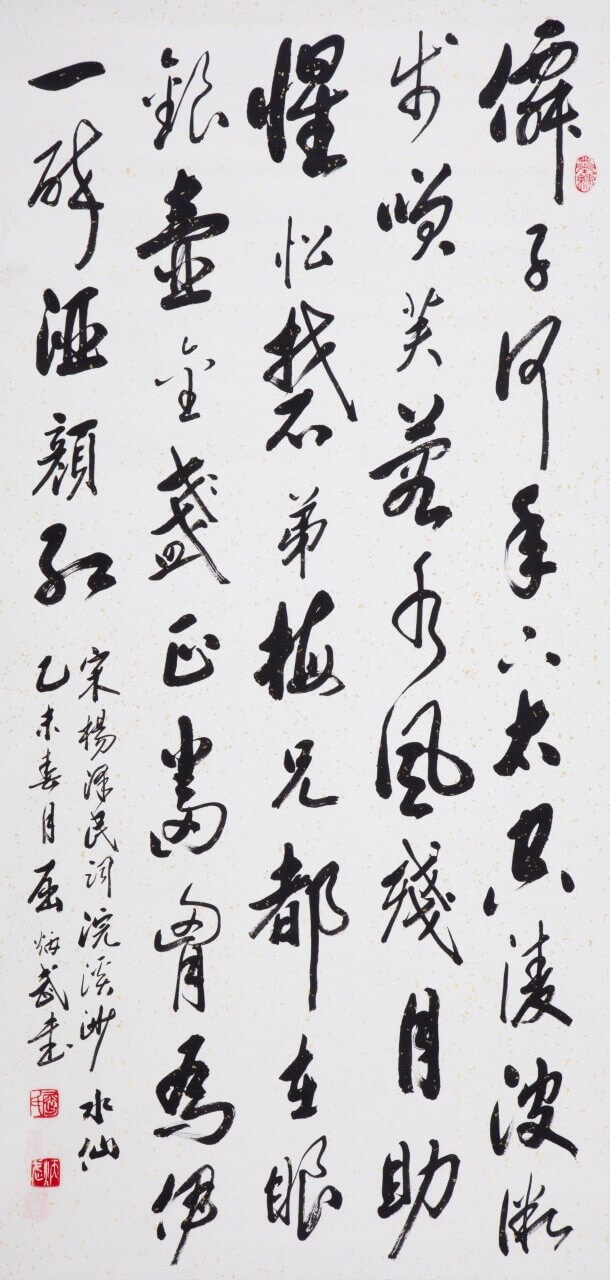 僊子何年下太空淩波微
步咲芙蓉水風殘月助
惺忪礬弟梅兄都在眼
銀壺金盞正當胷為伊
一醉酒顏紅
宋楊澤民詞浣溪沙 水仙
乙未春月屈炳武書